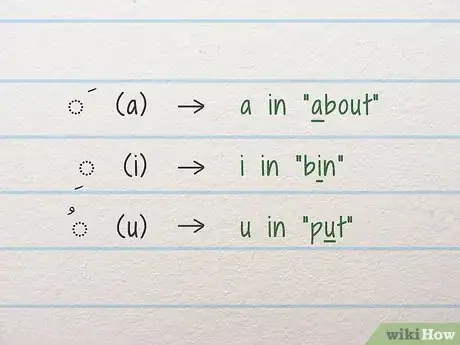 ◌َ (a) → a in "about"
◌ِ (i) → i in "bin"
◌ُ (u) → u in "put"
wikiHow